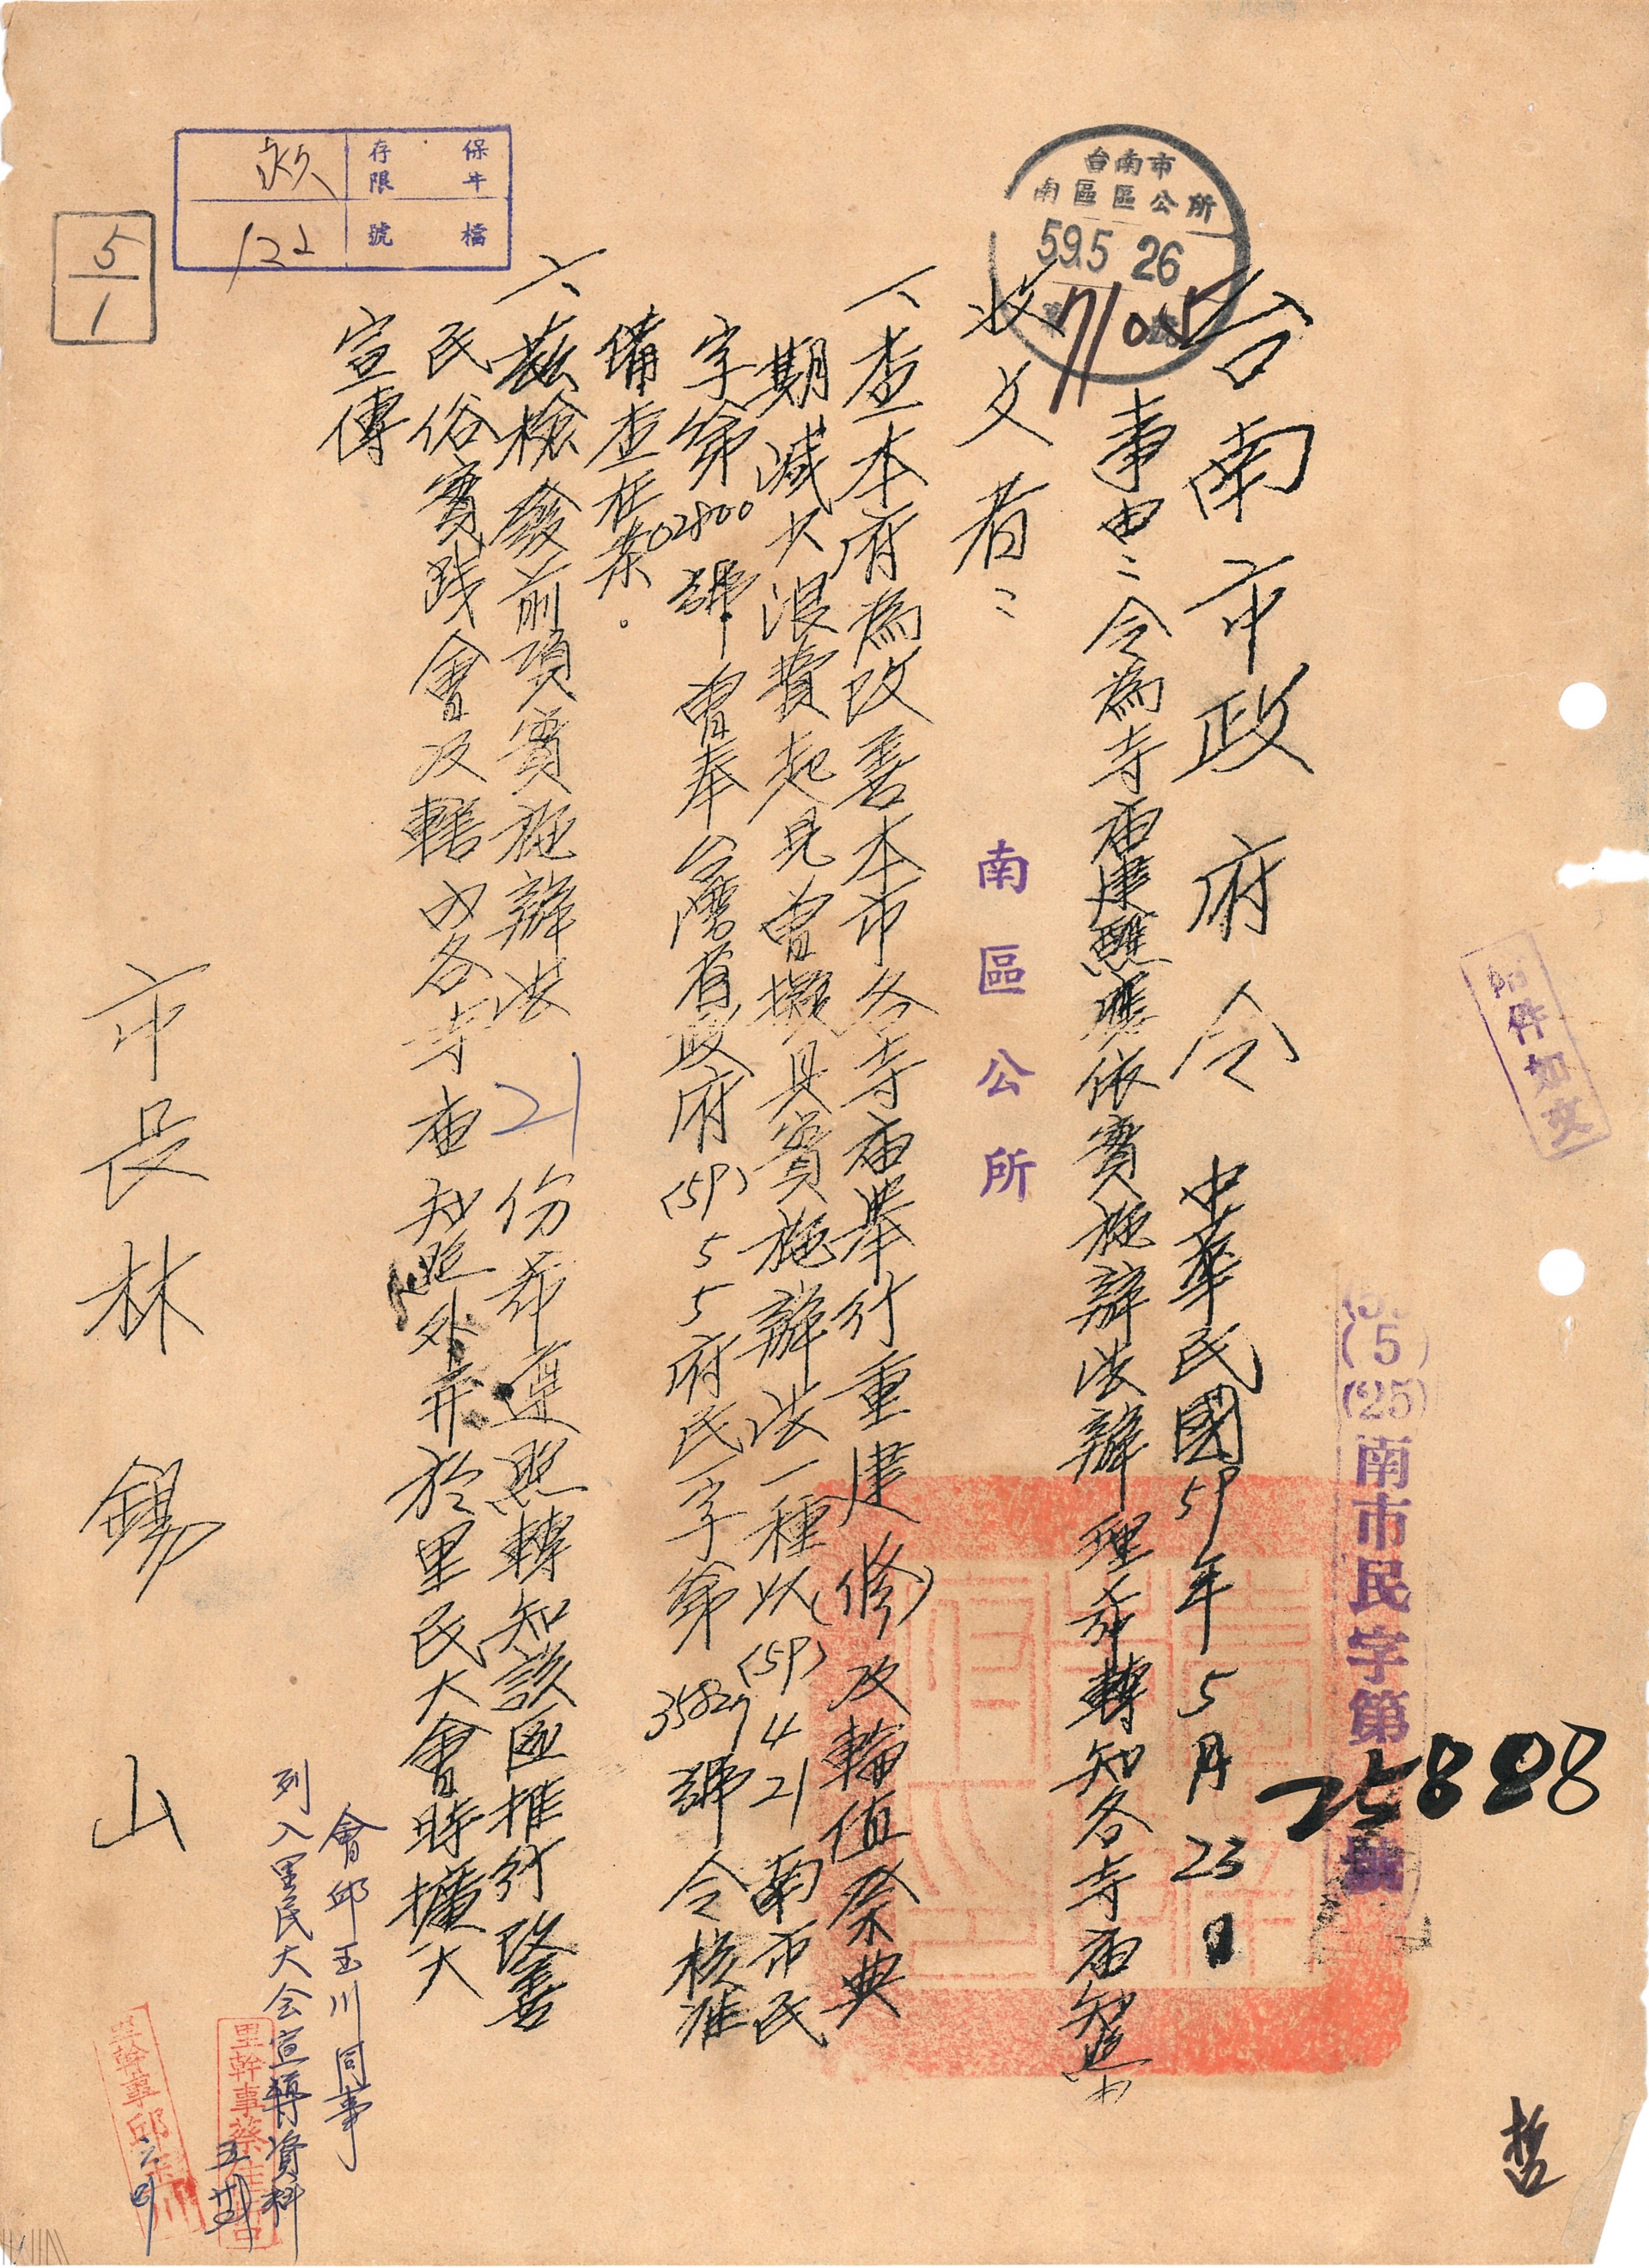 台南市政府令 中華民國59年5月23日
(5)
(25)
南市民字第25888號
事由：令為寺廟建醮應依實施辦法辦理希轉知各寺廟知照由
收文者：南區公所
一、查本府為改善本市各寺廟舉行重建(修)及輪值祭典
期減少浪費起見曾擬具實施辦法一種以(59)4 21南市民
字第02800號曾奉台灣省政府(59)5 5府民一字第35827號令核准
備查在案。
二、茲檢發前項實施辦法21份希遵照轉知該區推行改善
民俗實踐會及轄內各寺廟知照外并於里民大會時擴大
宣傳
市長林錫山
台南市
南區區公所
59.5 26
保存年限
永久
檔號
122
5
1
附件如文
會邱玉川同事
列入里民大会宣導資料
里幹事蔡
里幹事邱玉川
哲